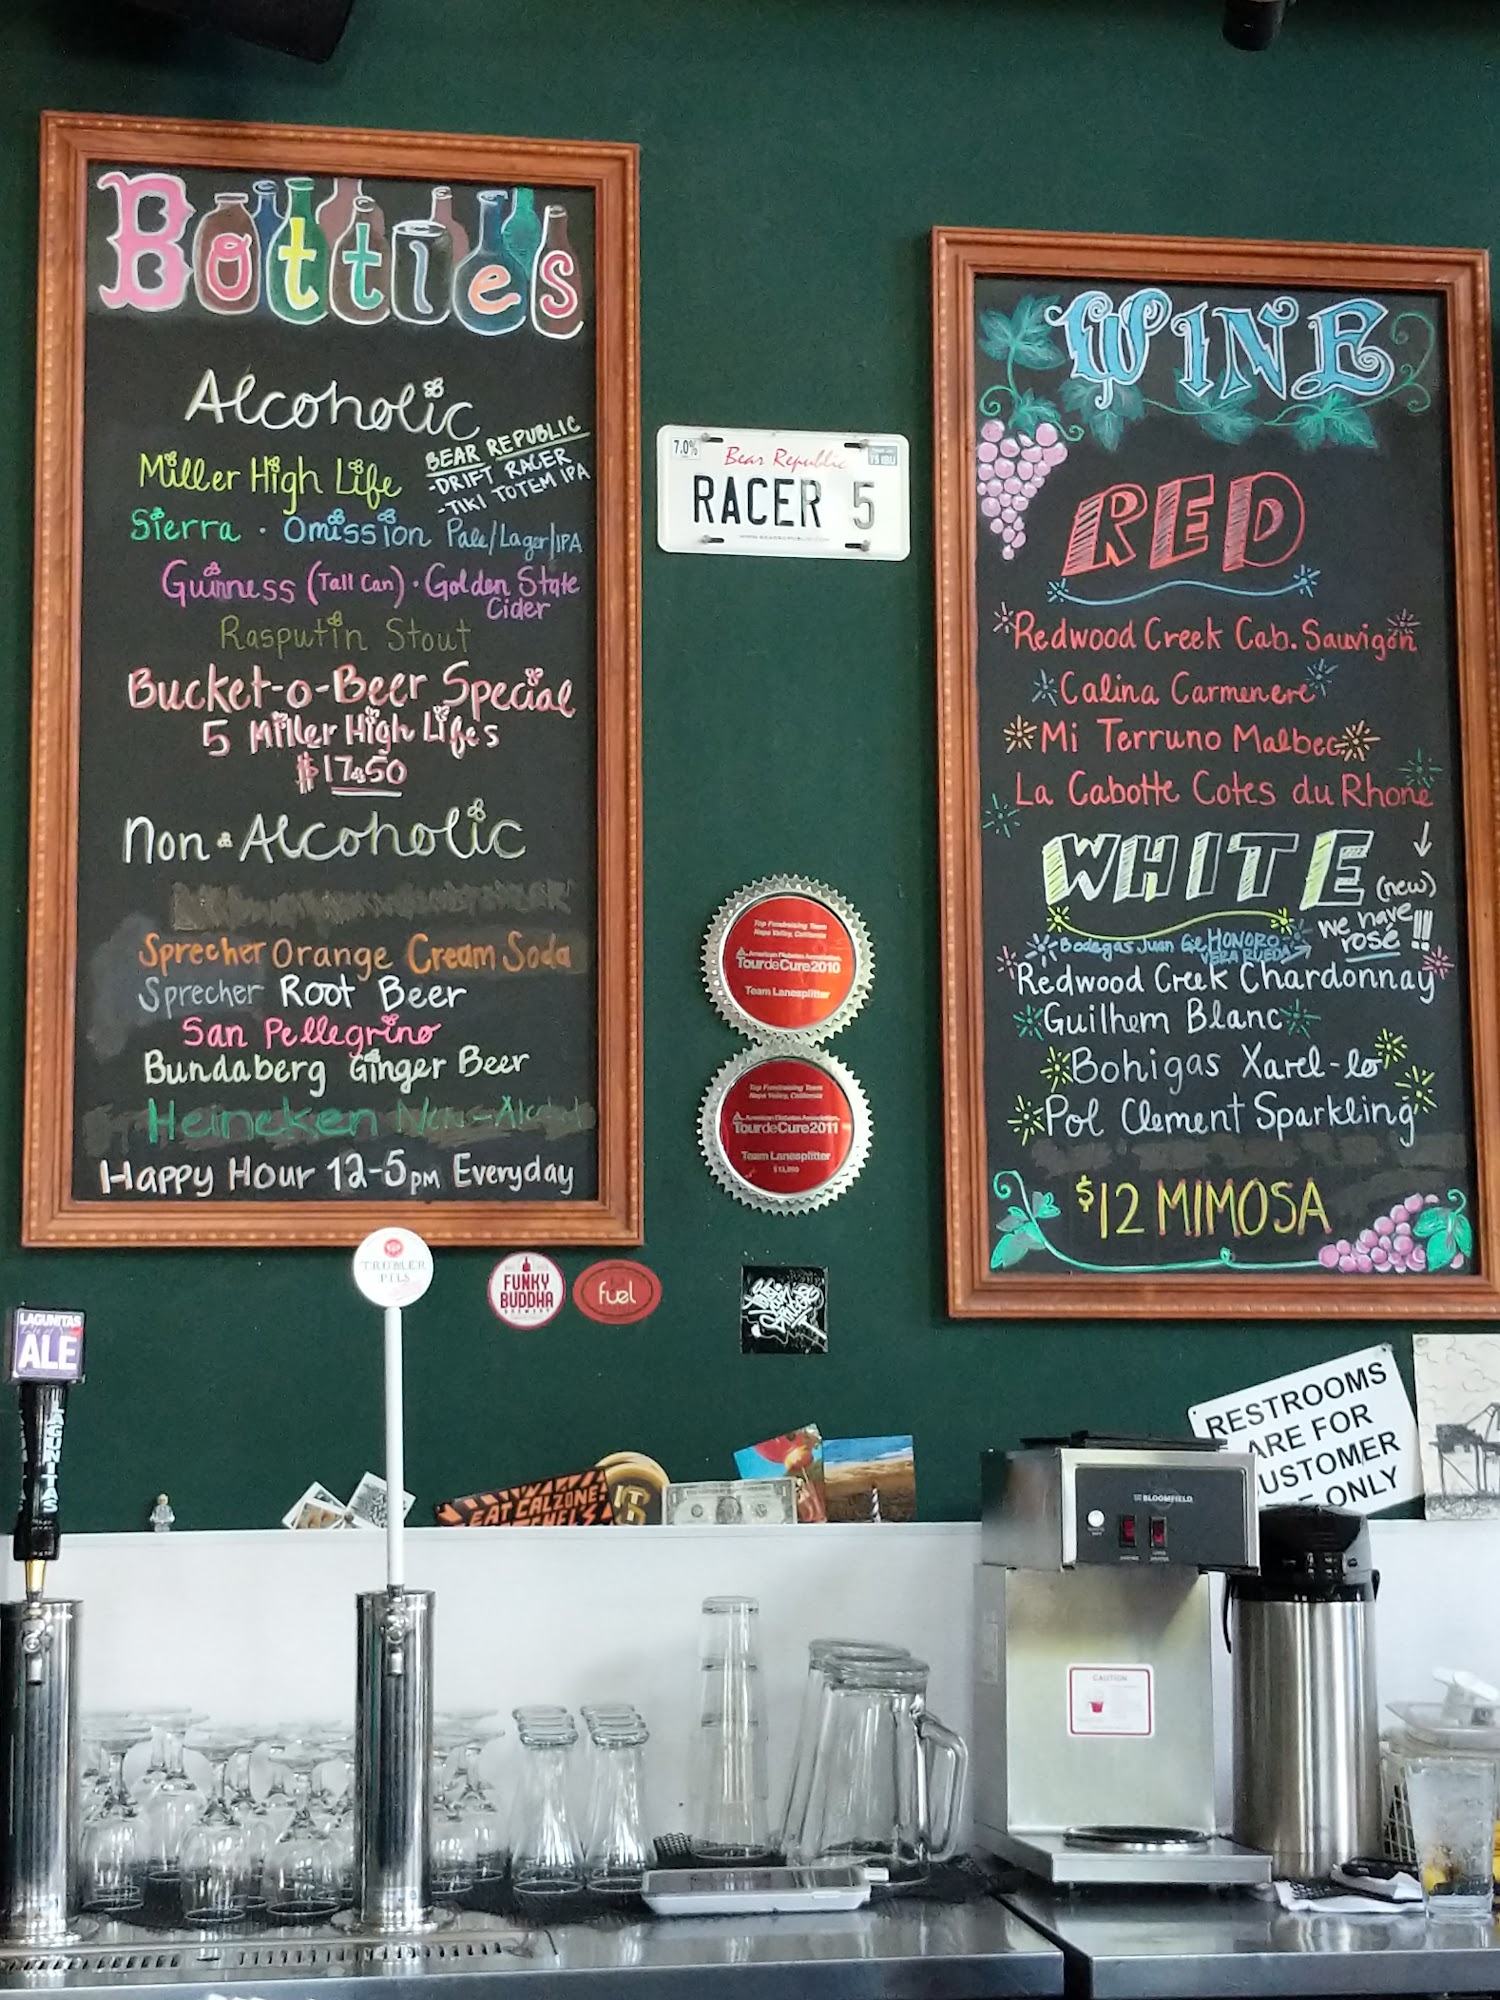 Bottles
Alcoholic
Miller High Life
BEAR REPUBLIC
-DRIFT RACER
-TIKI TOTEM IPA
Sierra · Omission Pale/Lager/IPA
Guinness (Tall Can) · Golden State
Cider
Rasputin Stout
Bucket-o-Beer Special
5 Miller High Lifes
$17.50
Non-Alcoholic
Sprecher Orange Cream Soda
Sprecher Root Beer
San Pellegrino
Bundaberg Ginger Beer
Heineken Non-Alcohol
Happy Hour 12-5pm Everyday
7.0%
Bear Republic
75 IBU
RACER 5
WWW.BEARREPUBLIC.COM
Top Fundraising Team
Napa Valley, California
American Diabetes Association.
Tour de Cure 2010
Team Lanesplitter
Top Fundraising Team
Napa Valley, California
American Diabetes Association.
Tour de Cure 2011
Team Lanesplitter
WINE
RED
Redwood Creek Cab. Sauvigon
Calina Carmenere
Mi Terruno Malbec
La Cabotte Cotes du Rhone
WHITE
(new)
we have
rosé!!!
Bodegas Juan Gil HONORO
VERA RUEDA
Redwood Creek Chardonnay
Guilhem Blanc
Bohigas Xarel-lo
Pol Clement Sparkling
$12 MIMOSA
TRUMER
PILS
FUNKY
BUDDHA
BREWERY
fuel
LAGUNITAS
ALE
LAGUNITAS
EAT CALZONE!
RESTROOMS
ARE FOR
CUSTOMER
ONLY
BLOOMFIELD
CAUTION